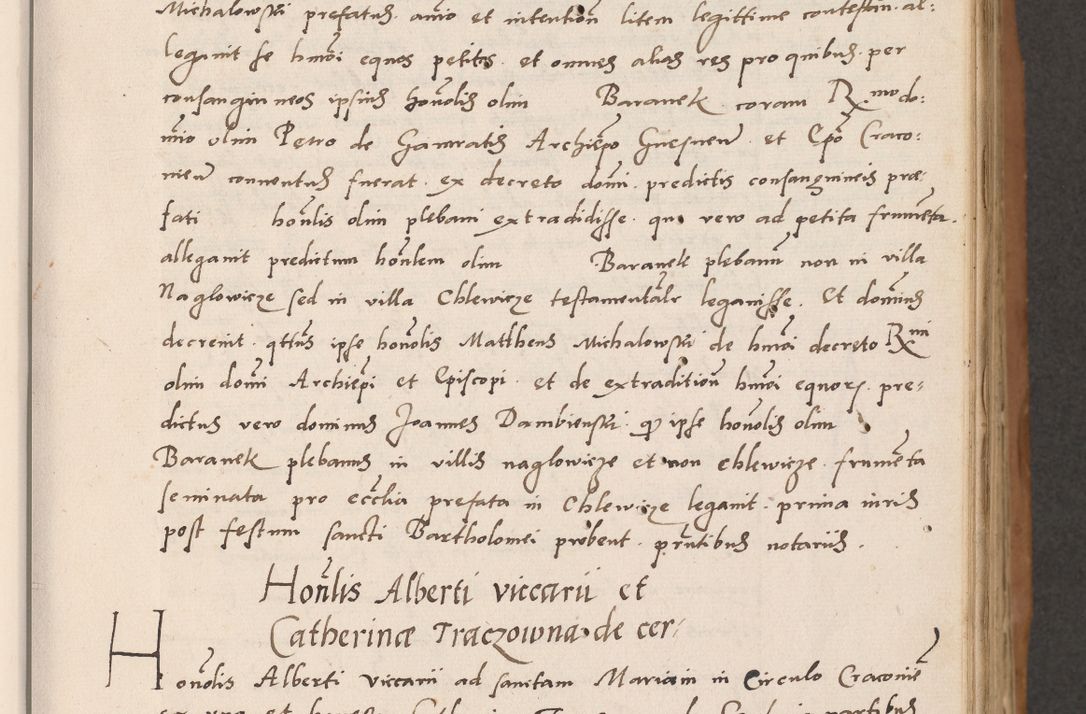 Michalowski prefatus. animo et intention litem legittime contestan. al:
legavit se hmoi equos petitos. et omnes alias res pro quibus. per
consanguineos ipsius honolis olim Baranek. coram Rmo do:
mino olim Petro de Gamratis Archiepo Gnesnen. et Epo Craco:
vien conventus fuerat. ex decreto domi. predictis consanguineis præ
fati honlis olim plebani extradidisse. quo vero ad petita frumenta.
allegavit predictum honlem olim Baranek plebanum non in villa
Naglowicze sed in villa Chlewicze testamentale legavisse. Et dominus
decrevit. qttus ipse honolis Mattheus Michalowski de hmoi decreto Rmi
olim domi Archiepi et Episcopi. et de extradition hmoi equorum. pre,
dictus vero dominus Joannes Dambienski. ipse honolis olim
Baranek plebanus in villis naglowicze et non chlewicze. frumenta
seminata pro ecclia prefata in Chlewicze legavit. prima iuris
post festum sancti Bartholomei probent. prntibus notariis.
Honlis Alberti viccarii et
Catherinæ Traczowna de cer,
Honolis Alberti viccarii ad sanctam Mariam in Circulo Cracovien